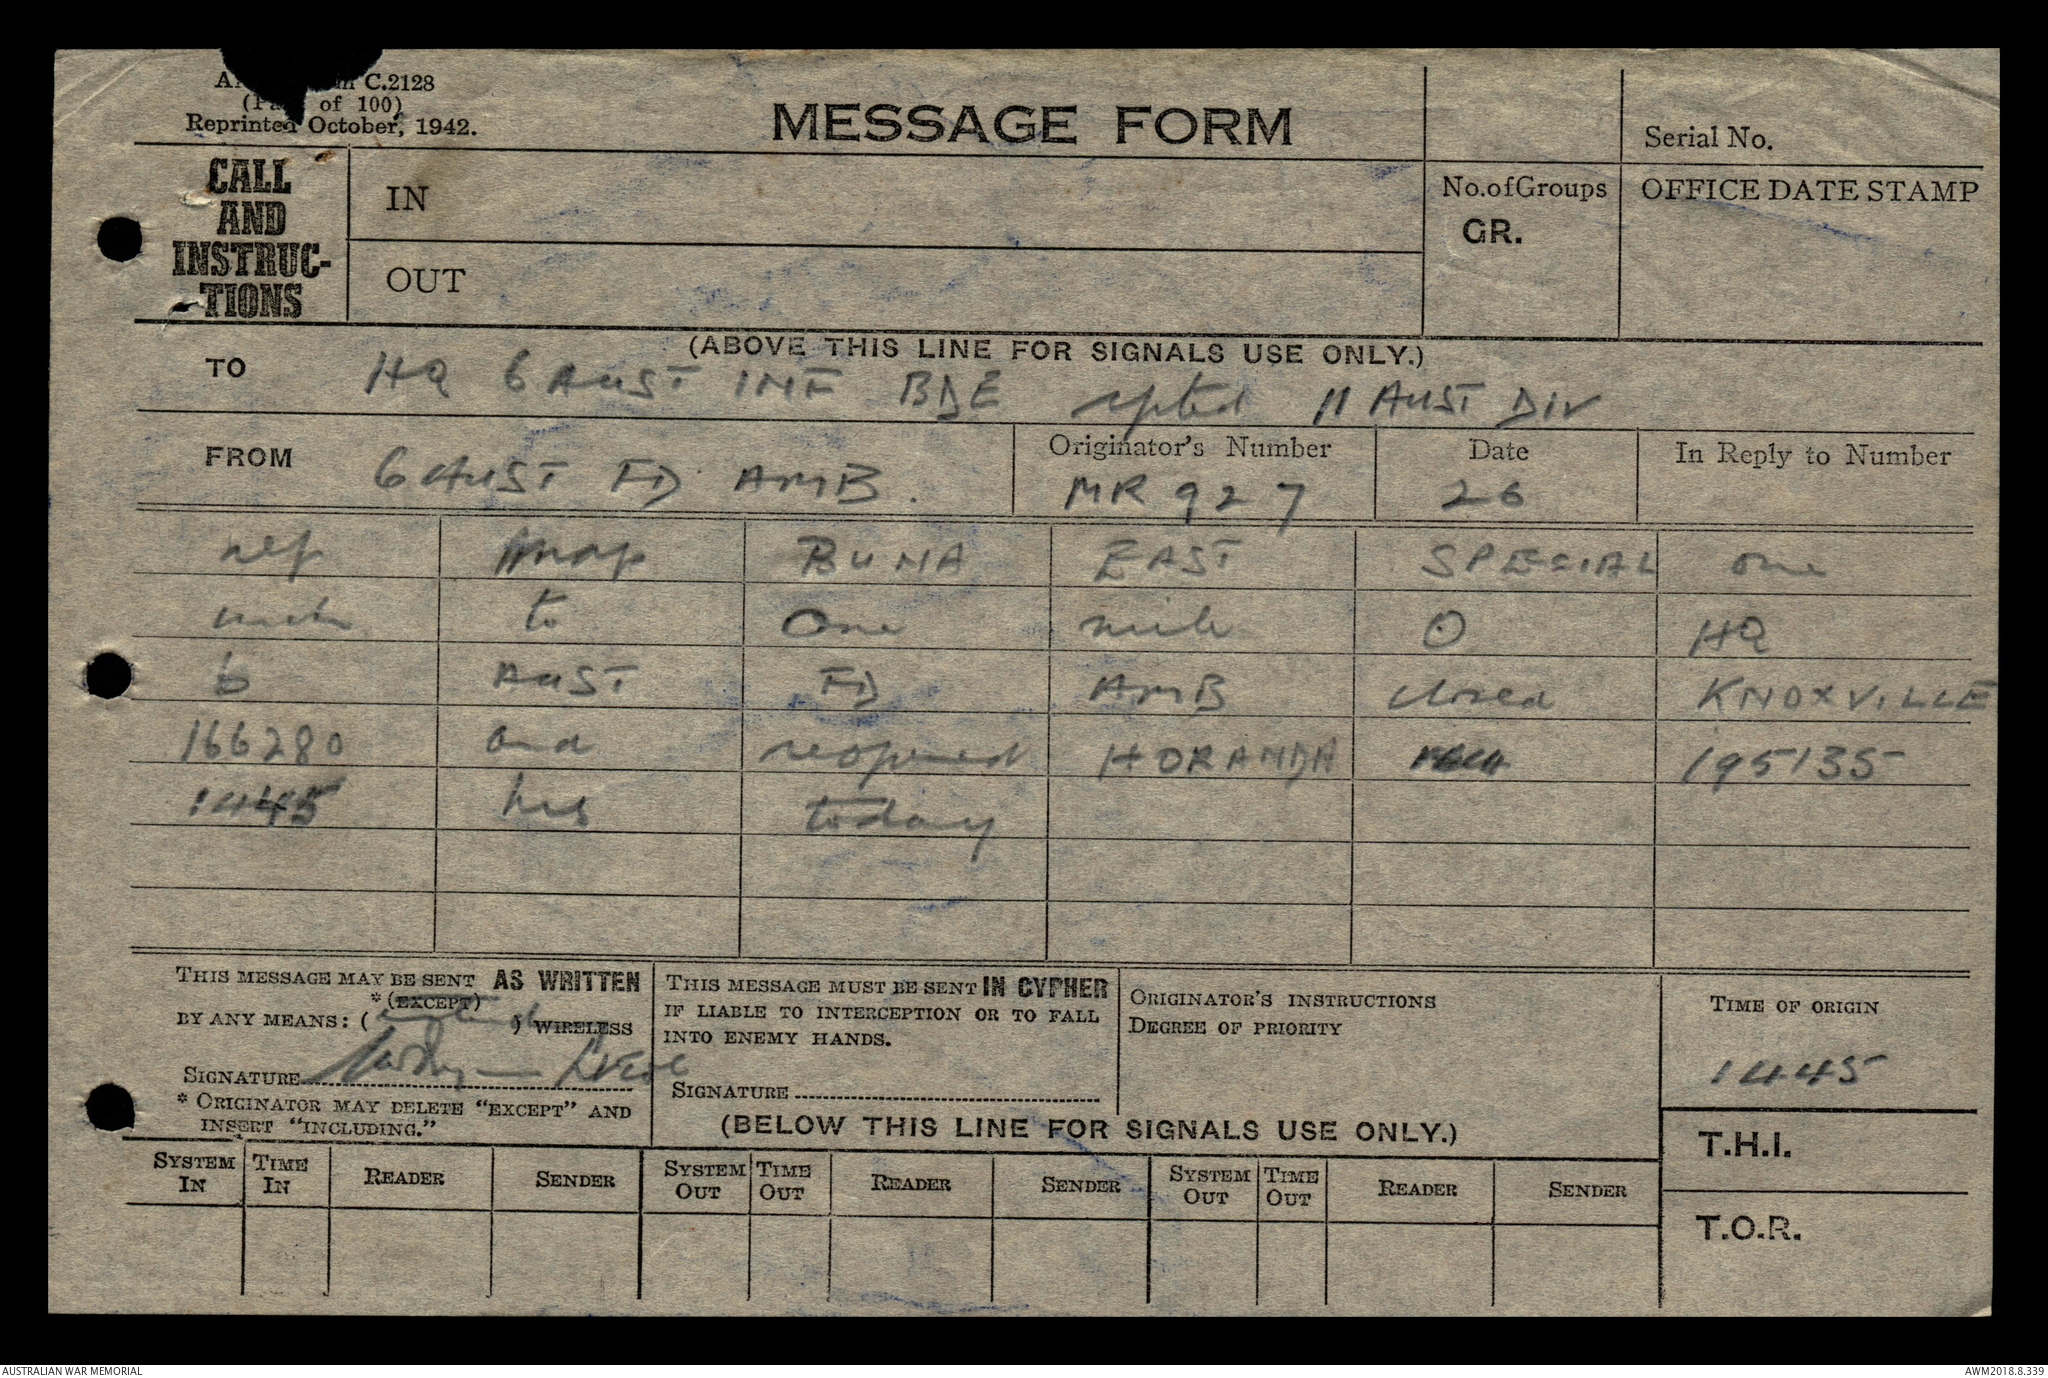 C.2128
of 100)
Reprinted October, 1942.
MESSAGE FORM
Serial No.
CALL
AND
INSTRUC-
-TIONS
IN
OUT
No. of Groups
GR.
OFFICE DATE STAMP
(ABOVE THIS LINE FOR SIGNALS USE ONLY.)
TO HQ 6 AUST INF BDE rptd 11 AUST DIV
FROM 6 AUST FD AMB.
Originator's Number
MR 927
Date
26
In Reply to Number
ref map BUNA EAST SPECIAL one
inch to one mile O HQ
6 AUST FD AMB closed KNOXVILLE
166280 and reopened HORANDA 195135
1445 hrs today
THIS MESSAGE MAY BE SENT AS WRITTEN
*(EXCEPT)
BY ANY MEANS: ( ) WIRELESS
SIGNATURE
* ORIGINATOR MAY DELETE "EXCEPT" AND
INSERT "INCLUDING."
THIS MESSAGE MUST BE SENT IN CYPHER
IF LIABLE TO INTERCEPTION OR TO FALL
INTO ENEMY HANDS.
SIGNATURE
ORIGINATOR'S INSTRUCTIONS
DEGREE OF PRIORITY
TIME OF ORIGIN
1445
(BELOW THIS LINE FOR SIGNALS USE ONLY.)
T.H.I.
T.O.R.
SYSTEM IN TIME IN READER SENDER SYSTEM OUT TIME OUT READER SENDER SYSTEM OUT TIME OUT READER SENDER
AUSTRALIAN WAR MEMORIAL
AWM2018.8.339